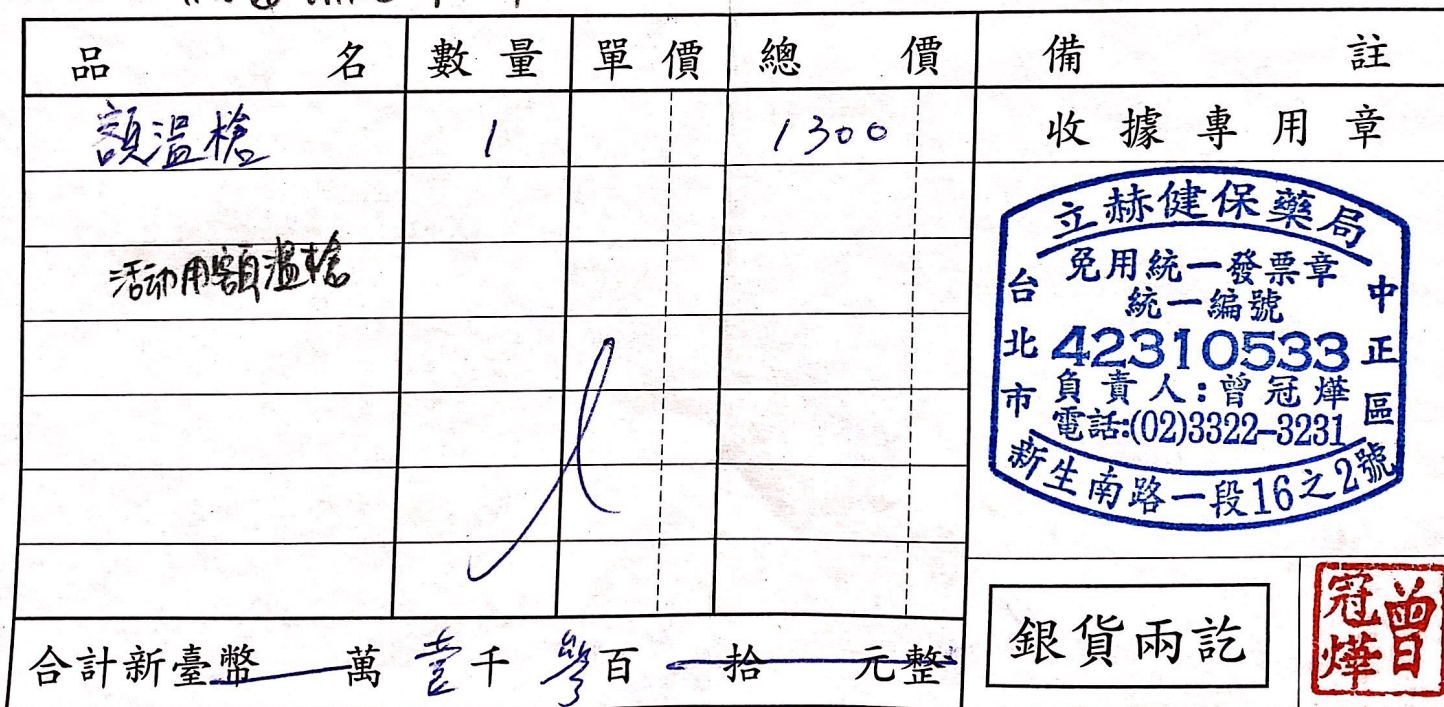 品名 數量 單價 總價 備註
額溫槍 1 1300
收據專用章
活动用額溫槍
立赫健保藥局
免用統一發票章
統一編號
42310533
負責人:曾冠燁
電話:(02)3322-3231
台北市 中正區
新生南路一段16之2號
合計新臺幣 萬 壹千 參百 拾 元整
銀貨兩訖
曾冠燁